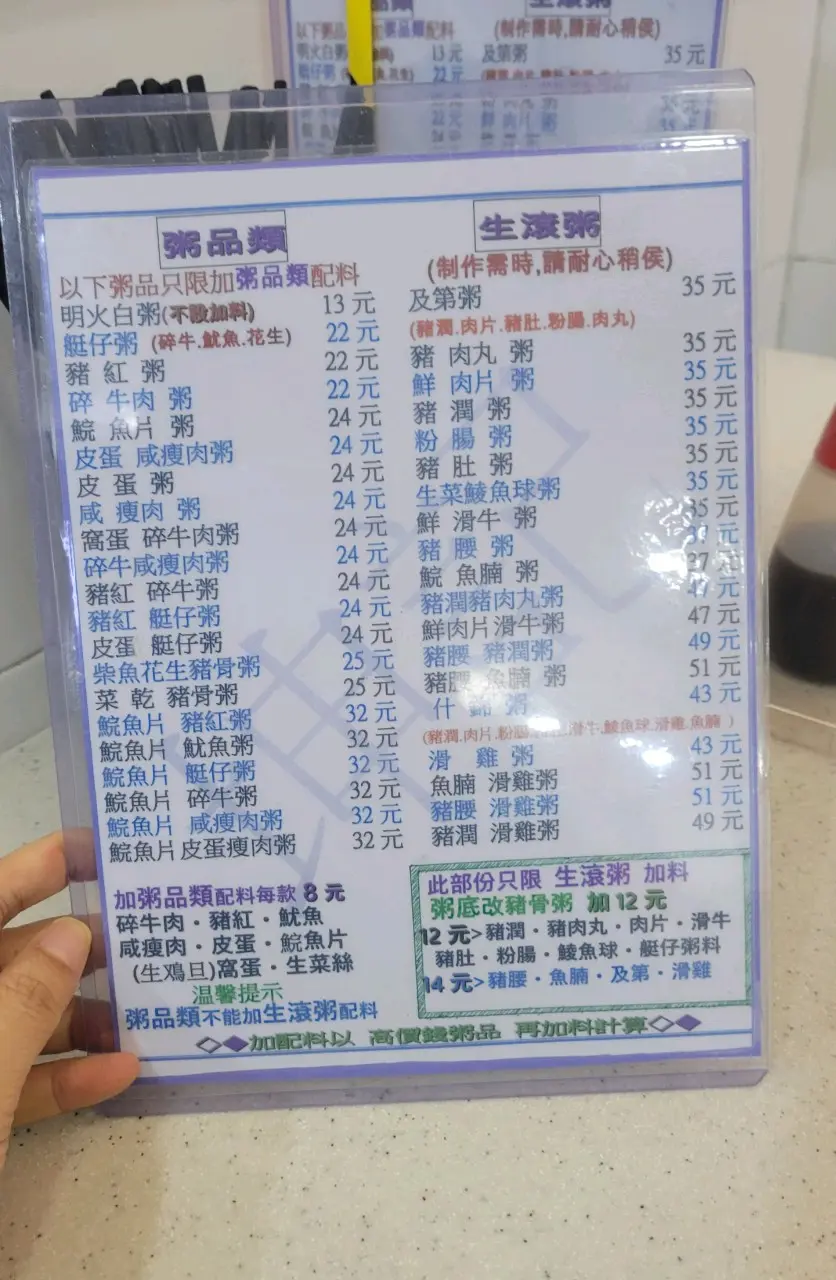 以下粥品 粥品類配料
明火白粥 13 元
艇仔粥 22 元
(制作需時,請耐心稍侯)
及第粥 35 元
粥品類
以下粥品只限加粥品類配料
明火白粥(不設加料) 13 元
艇仔粥 (碎牛.魷魚.花生) 22 元
豬 紅 粥 22 元
碎 牛肉 粥 22 元
鯇 魚片 粥 24 元
皮蛋 咸瘦肉粥 24 元
皮 蛋 粥 24 元
咸 瘦肉 粥 24 元
窩蛋 碎牛肉粥 24 元
碎牛咸瘦肉粥 24 元
豬紅 碎牛粥 24 元
豬紅 艇仔粥 24 元
皮蛋 艇仔粥 24 元
柴魚花生豬骨粥 25 元
菜 乾 豬骨粥 25 元
鯇魚片 豬紅粥 32 元
鯇魚片 魷魚粥 32 元
鯇魚片 艇仔粥 32 元
鯇魚片 碎牛粥 32 元
鯇魚片 咸瘦肉粥 32 元
鯇魚片皮蛋瘦肉粥 32 元
加粥品類配料每款 8 元
碎牛肉・豬紅・魷魚
咸瘦肉・皮蛋・鯇魚片
(生鳮旦)窩蛋・生菜絲
温馨提示
粥品類不能加生滾粥配料
生滾粥
(制作需時,請耐心稍侯)
及第粥 35 元
(豬潤.肉片.豬肚.粉腸.肉丸)
豬 肉丸 粥 35 元
鮮 肉片 粥 35 元
豬 潤 粥 35 元
粉 腸 粥 35 元
豬 肚 粥 35 元
生菜鯪魚球粥 35 元
鮮 滑牛 粥 35 元
豬 腰 粥 元
鯇 魚腩 粥 37 元
豬潤豬肉丸粥 47 元
鮮肉片滑牛粥 47 元
豬腰 豬潤粥 49 元
豬腰 魚腩 粥 51 元
什 錦 粥 43 元
(豬潤.肉片.粉腸 滑牛.鯪魚球.滑雞.魚腩 )
滑 雞 粥 43 元
魚腩 滑雞粥 51 元
豬腰 滑雞粥 51 元
豬潤 滑雞粥 49 元
此部份只限 生滾粥 加料
粥底改豬骨粥 加 12 元
12 元>豬潤・豬肉丸・肉片・滑牛
豬肚・粉腸・鯪魚球・艇仔粥料
14 元>豬腰・魚腩・及第・滑雞
◇◆加配料以 高價錢粥品 再加料計算◇◆